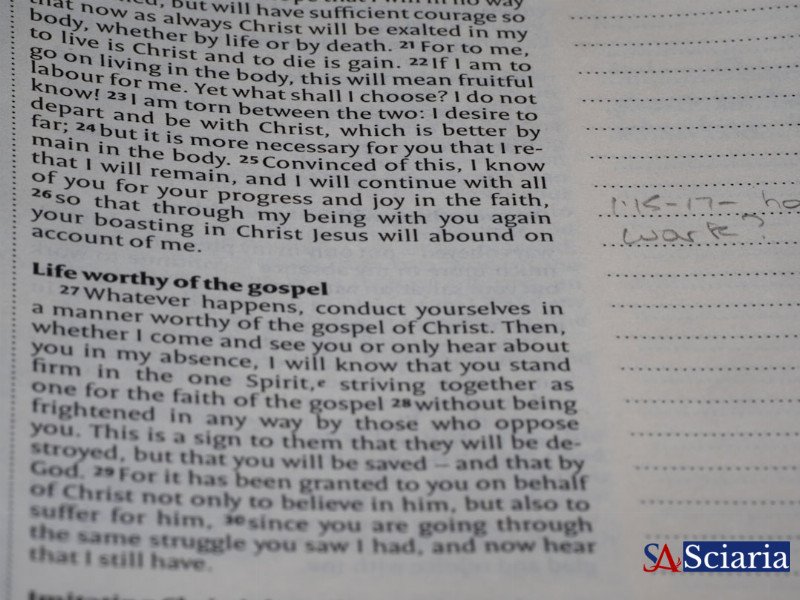 but will have sufficient courage so
that now as always Christ will be exalted in my
body, whether by life or by death. 21 For to me,
to live is Christ and to die is gain. 22 If I am to
go on living in the body, this will mean fruitful
labour for me. Yet what shall I choose? I do not
know! 23 I am torn between the two: I desire to
depart and be with Christ, which is better by
far; 24 but it is more necessary for you that I re-
main in the body. 25 Convinced of this, I know
that I will remain, and I will continue with all
of you for your progress and joy in the faith,
26 so that through my being with you again
your boasting in Christ Jesus will abound on
account of me.
Life worthy of the gospel
27 Whatever happens, conduct yourselves in
a manner worthy of the gospel of Christ. Then,
whether I come and see you or only hear about
you in my absence, I will know that you stand
firm in the one Spirit,e striving together as
one for the faith of the gospel 28 without being
frightened in any way by those who oppose
you. This is a sign to them that they will be de-
stroyed, but that you will be saved – and that by
God. 29 For it has been granted to you on behalf
of Christ not only to believe in him, but also to
suffer for him, 30 since you are going through
the same struggle you saw I had, and now hear
that I still have.
1:15-17-
work?
SA Sciaria